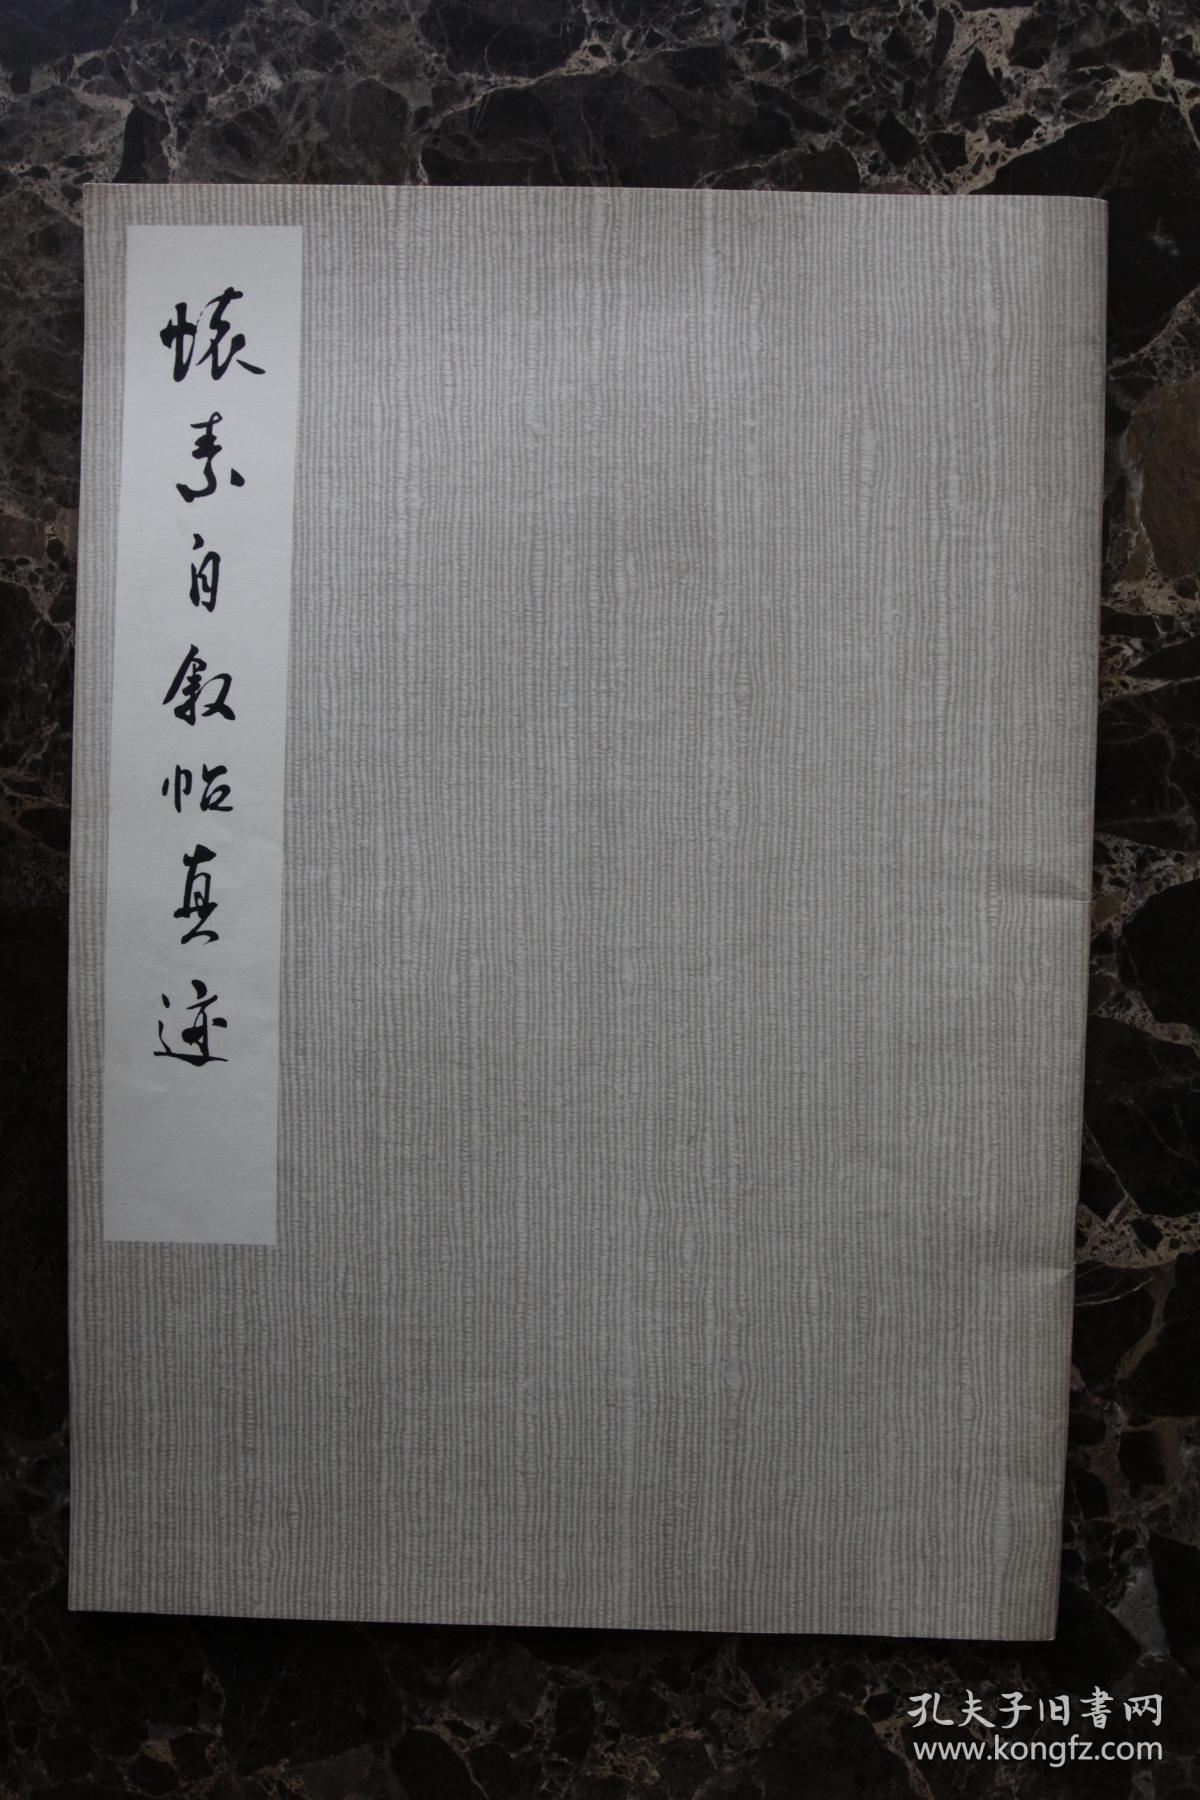 懐素自叙帖真迹
孔夫子旧書网
www.kongfz.com